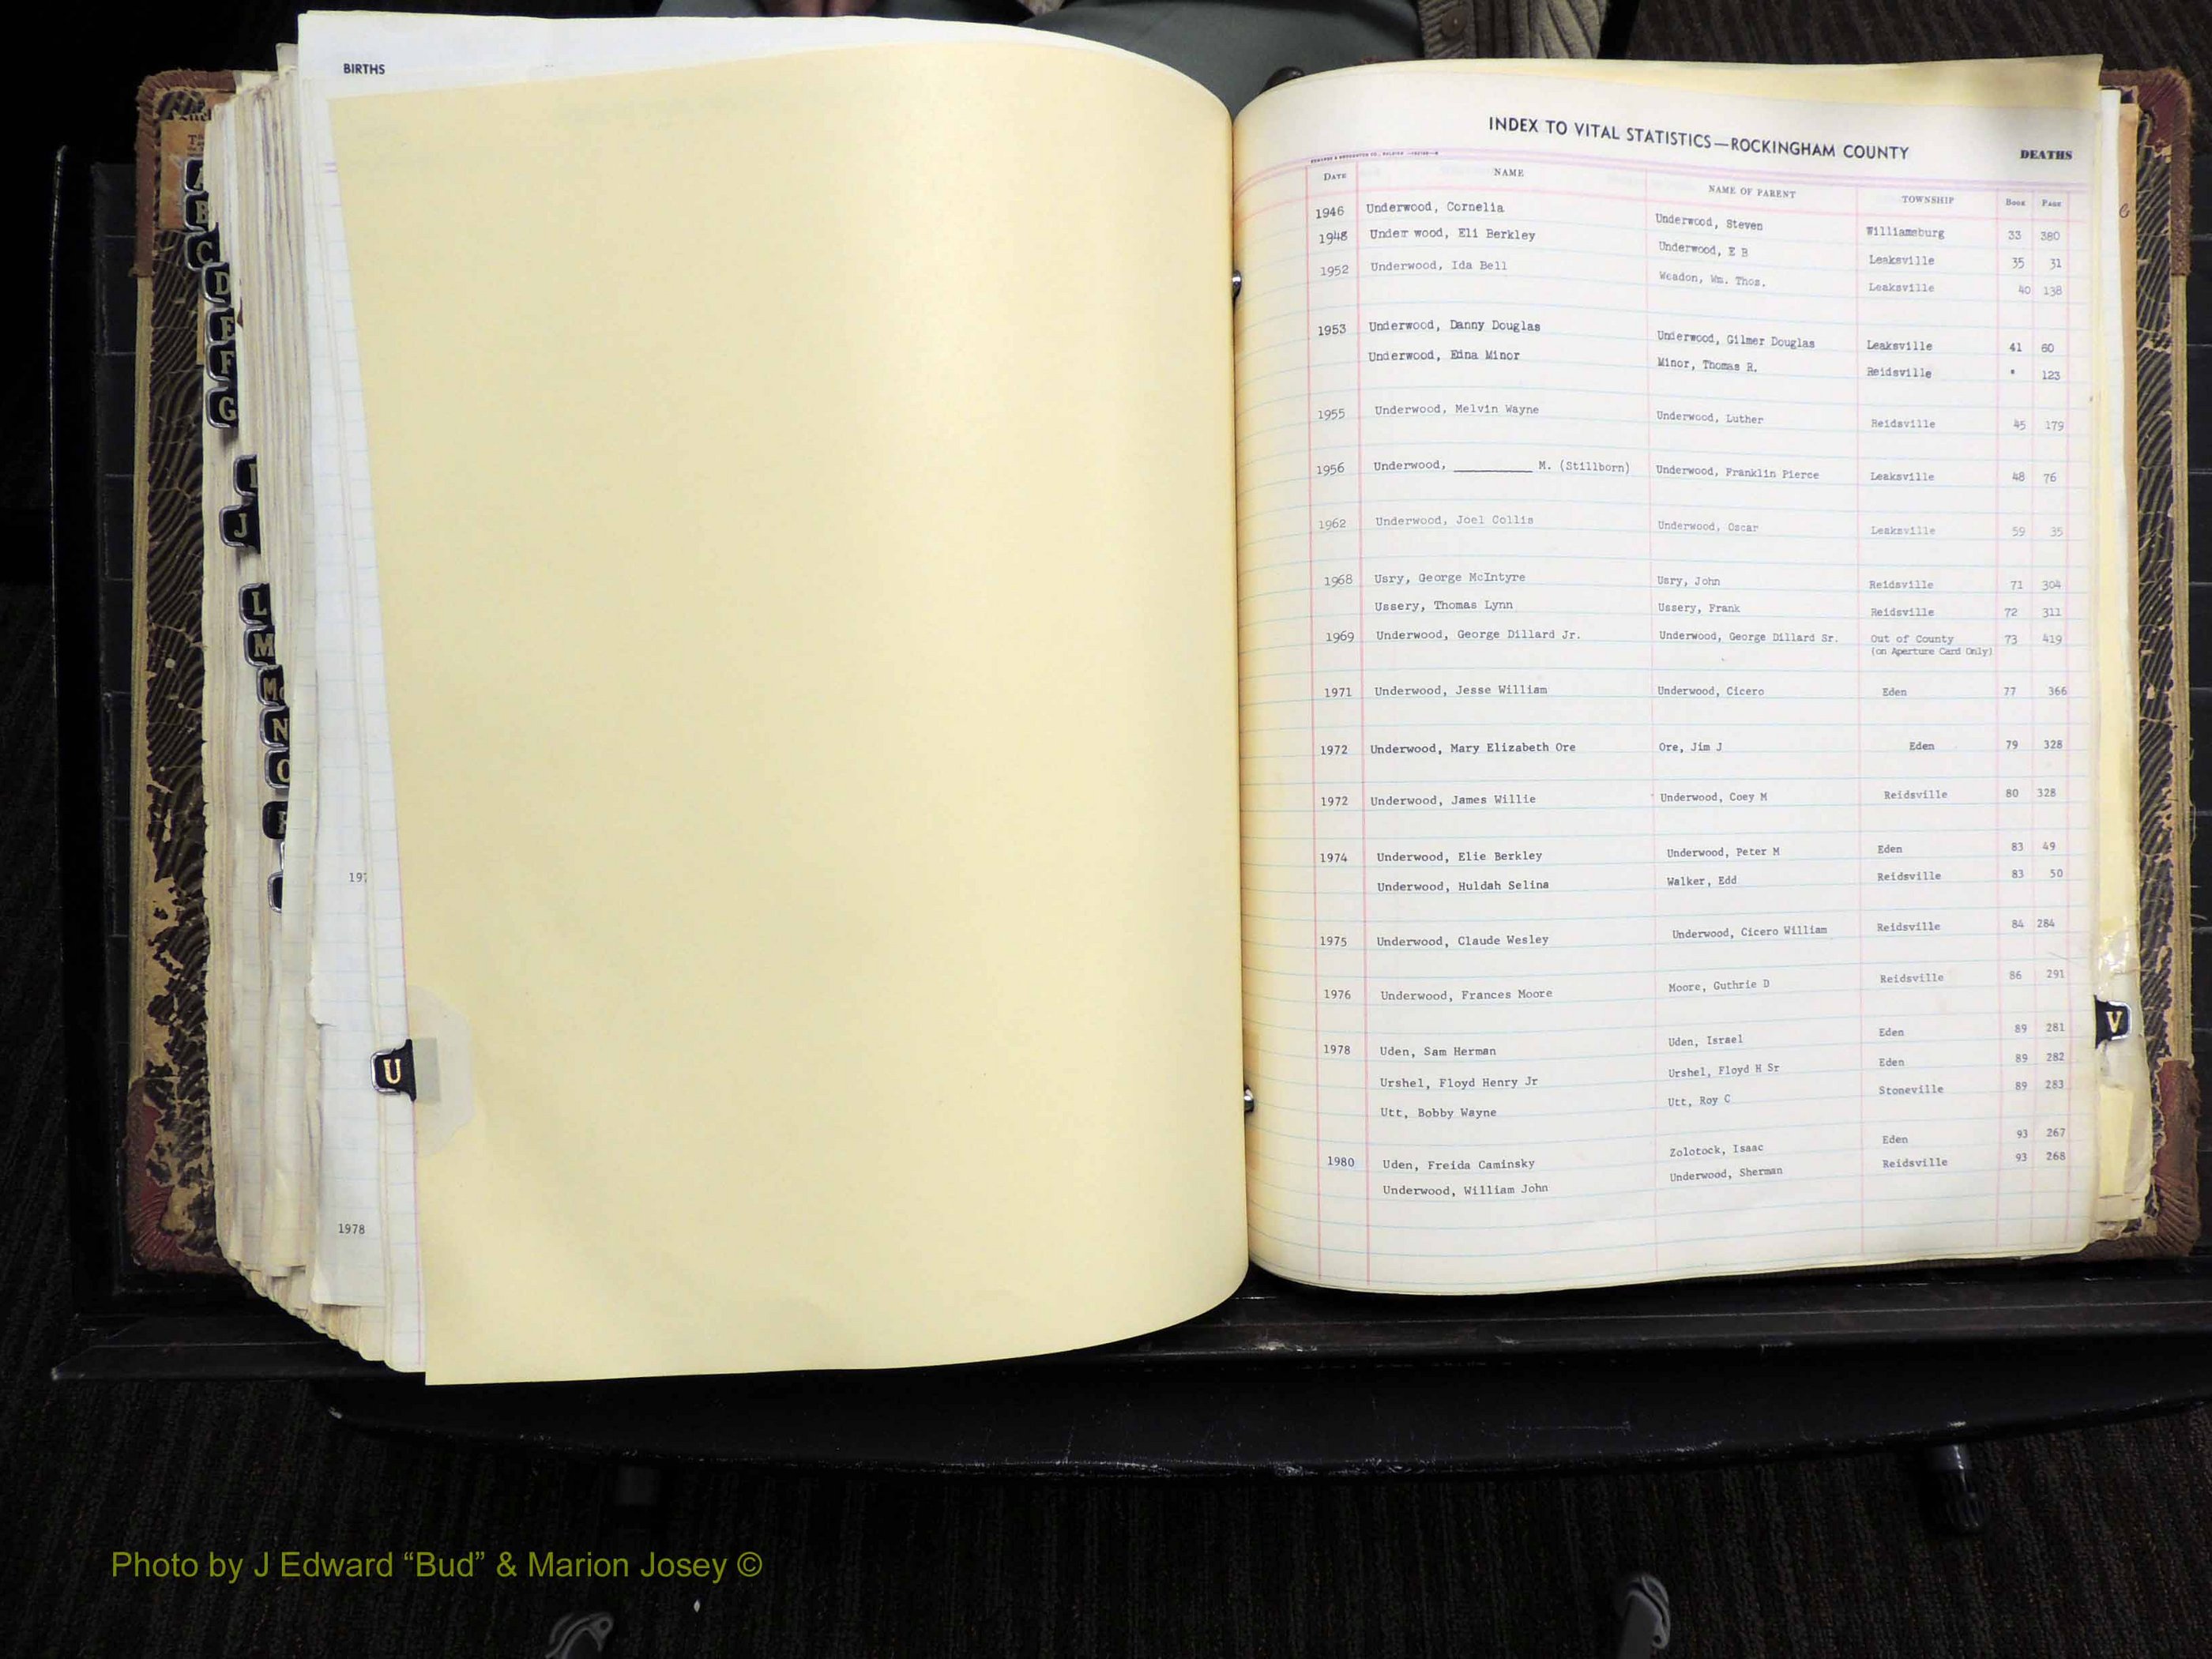 BIRTHS
A
B
C
D
E
F
G
I
J
L
M
Mc
N
O
U
1978
INDEX TO VITAL STATISTICS—ROCKINGHAM COUNTY
DEATHS
DATE NAME NAME OF PARENT TOWNSHIP BOOK PAGE
1946 Underwood, Cornelia Underwood, Steven Williamsburg 33 380
1948 Under wood, Eli Berkley Underwood, E B Leaksville 35 31
1952 Underwood, Ida Bell Weadon, Wm. Thos. Leaksville 40 138
1953 Underwood, Danny Douglas Underwood, Gilmer Douglas Leaksville 41 60
Underwood, Edna Minor Minor, Thomas R. Reidsville " 123
1955 Underwood, Melvin Wayne Underwood, Luther Reidsville 45 179
1956 Underwood, __________ M. (Stillborn) Underwood, Franklin Pierce Leaksville 48 76
1962 Underwood, Joel Collis Underwood, Oscar Leaksville 59 35
1968 Usry, George McIntyre Usry, John Reidsville 71 304
Ussery, Thomas Lynn Ussery, Frank Reidsville 72 311
1969 Underwood, George Dillard Jr. Underwood, George Dillard Sr. Out of County 73 419
(on Aperture Card Only)
1971 Underwood, Jesse William Underwood, Cicero Eden 77 366
1972 Underwood, Mary Elizabeth Ore Ore, Jim J Eden 79 328
1972 Underwood, James Willie Underwood, Coey M Reidsville 80 328
1974 Underwood, Elie Berkley Underwood, Peter M Eden 83 49
Underwood, Huldah Selina Walker, Edd Reidsville 83 50
1975 Underwood, Claude Wesley Underwood, Cicero William Reidsville 84 284
1976 Underwood, Frances Moore Moore, Guthrie D Reidsville 86 291
1978 Uden, Sam Herman Uden, Israel Eden 89 281
Urshel, Floyd Henry Jr Urshel, Floyd H Sr Eden 89 282
Utt, Bobby Wayne Utt, Roy C Stoneville 89 283
1980 Uden, Freida Caminsky Zolotock, Isaac Eden 93 267
Underwood, William John Underwood, Sherman Reidsville 93 268
V
Photo by J Edward “Bud” & Marion Josey ©